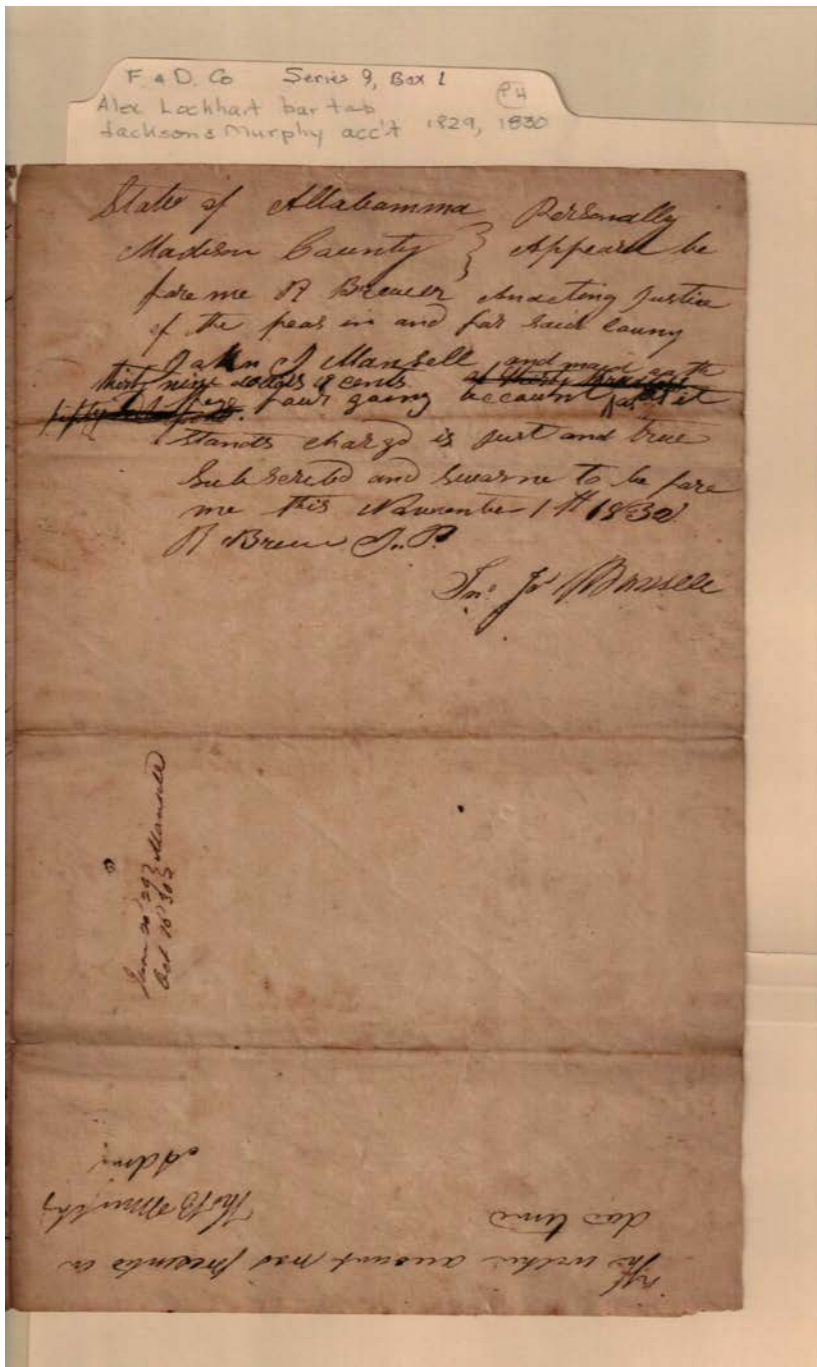 F. & D. Co Series 9, Box 1
P4
Alex Lockhart bar tab
Jackson & Murphy acc't 1829, 1830
State of Allabamma Personally
Madison County } Appeard be
fore me R Brewer Anacting Justice
of the peas in and for said County
John J Mansell and maid oath
thirty nine dollars cents
four going account as it
Stands charge is just and true
Subscribed and swarne to be fore
me this November 1th 1830
R Brewer J. P.
Jno J Mansell
Mansell
The within account was presented in
due time
Thos B Murphy
Adm